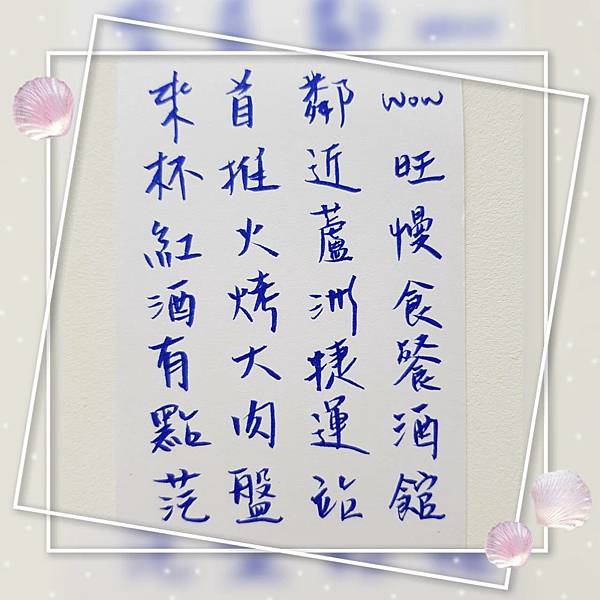 wow旺慢食餐酒館
鄰近蘆洲捷運站
首推火烤大肉盤
來杯紅酒有點范